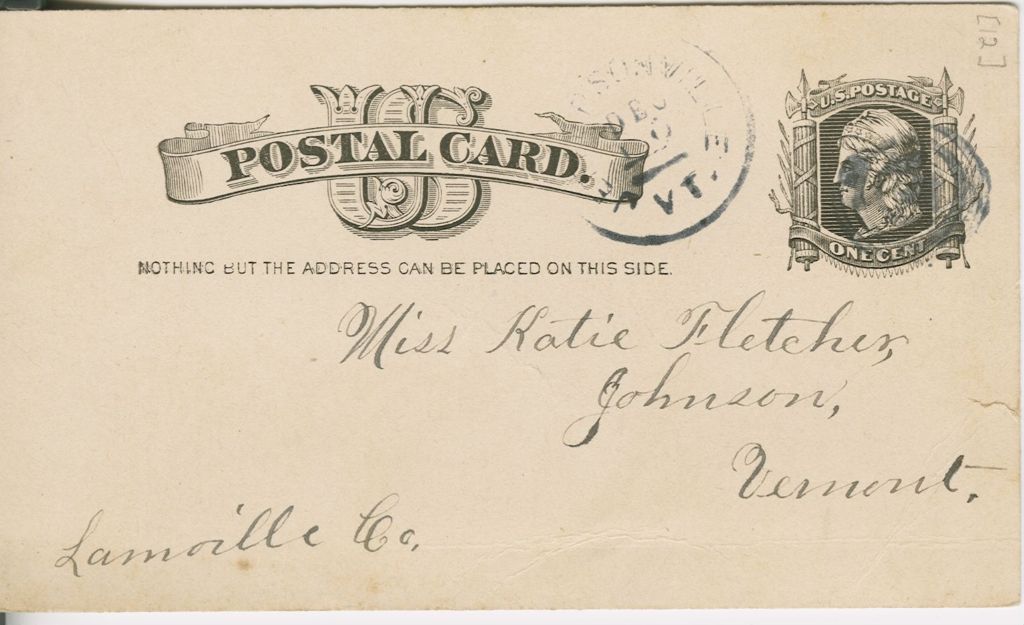 [12]
US
POSTAL CARD.
DEC
VT.
U.S. POSTAGE
ONE CENT
NOTHING BUT THE ADDRESS CAN BE PLACED ON THIS SIDE.
Miss Katie Fletcher,
Johnson,
Vermont.
Lamoille Co.